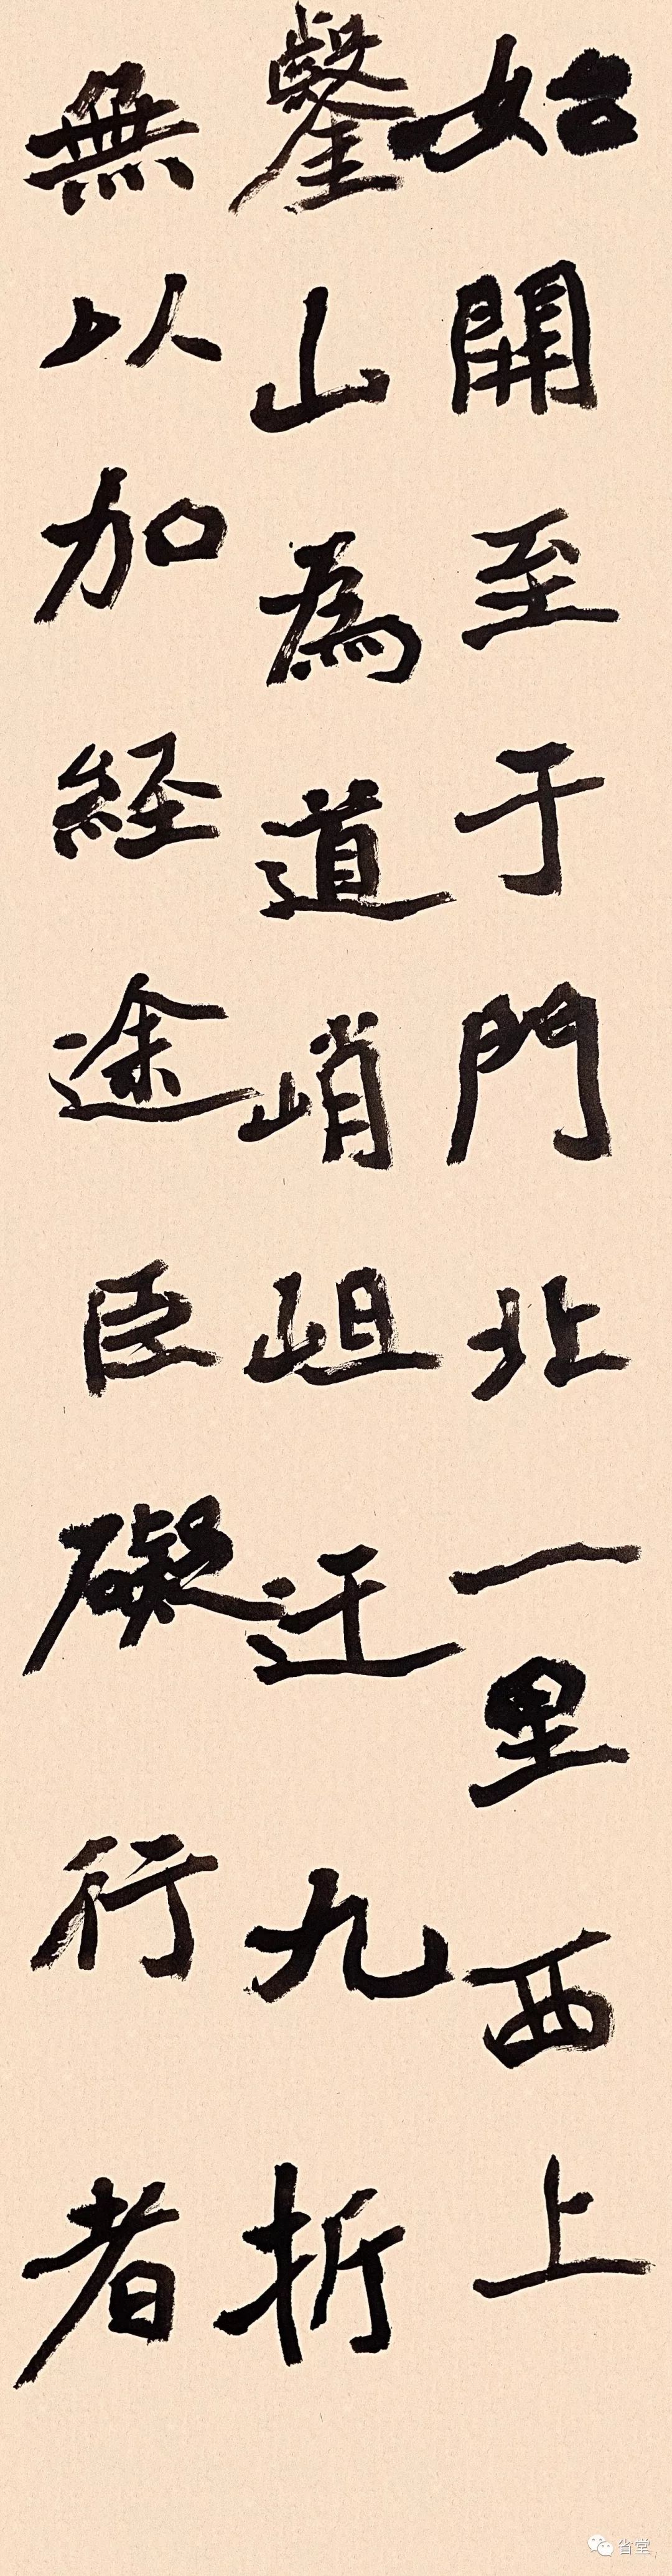 始開至于門北一里西上
鑿山為道峭岨迂九折
無以加經途𦣞礙行者
省堂